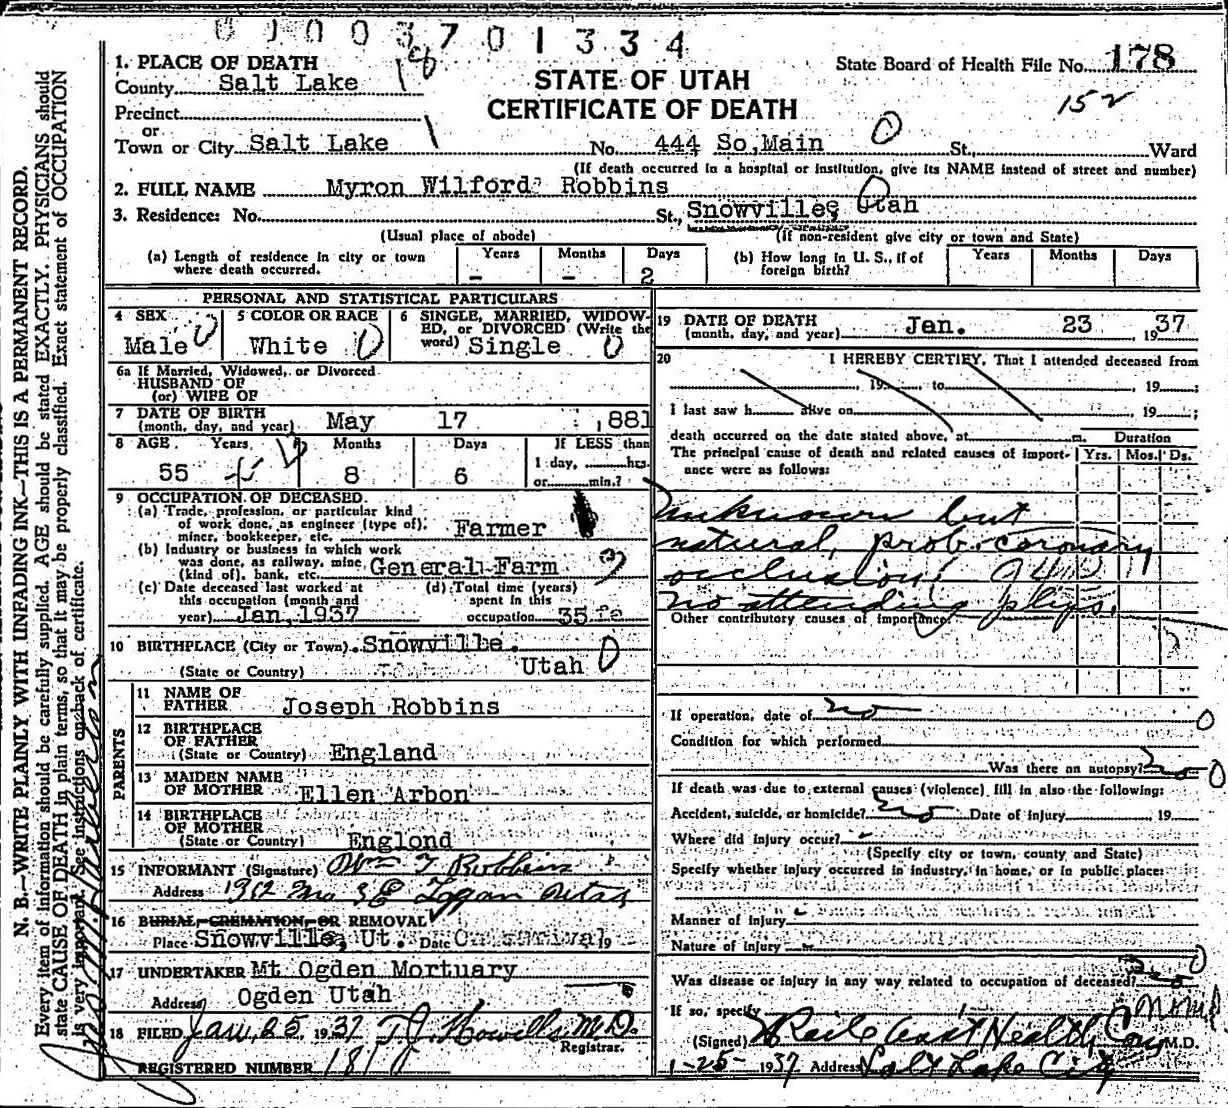 0 0 0 0 3 7 0 1 3 3 4
1. PLACE OF DEATH 18
County Salt Lake
STATE OF UTAH
CERTIFICATE OF DEATH
State Board of Health File No. 178
152
Precinct
or
Town or City Salt Lake 1 No. 444 So,Main 0 St, Ward
(If death occurred in a hospital or institution, give its NAME instead of street and number)
2. FULL NAME Myron Wilford Robbins
3. Residence: No. St., Snowville, Utah
(Usual place of abode) (If non-resident give city or town and State)
(a) Length of residence in city or town where death occurred. Years - Months - Days 2
(b) How long in U. S., if of foreign birth? Years Months Days
PERSONAL AND STATISTICAL PARTICULARS
4 SEX Male 0
5 COLOR OR RACE White 0
6 SINGLE, MARRIED, WIDOWED, or DIVORCED (Write the word) Single 0
6a If Married, Widowed, or Divorced
HUSBAND OF
(or) WIFE OF
7 DATE OF BIRTH
(month, day, and year) May 17 ,881
8 AGE Years 55 Months 8 Days 6
If LESS than
1 day, hrs.
or min.?
9 OCCUPATION OF DECEASED.
(a) Trade, profession, or particular kind
of work done, as engineer (type of),
miner, bookkeeper, etc. Farmer
(b) Industry or business in which work
was done, as railway, mine
(kind of), bank, etc. General Farm
(c) Date deceased last worked at
this occupation (month and
year) Jan,1937
(d) Total time (years)
spent in this
occupation 35
10 BIRTHPLACE (City or Town) Snowville.
(State or Country) Utah 0
PARENTS
11 NAME OF
FATHER Joseph Robbins
12 BIRTHPLACE
OF FATHER
(State or Country) England
13 MAIDEN NAME
OF MOTHER Ellen Arbon
14 BIRTHPLACE
OF MOTHER
(State or Country) Englond
15 INFORMANT (Signature) Wm T Robbins
Address 192 No 3 E Logan Utah
16 BURIAL, CREMATION, OR REMOVAL
Place Snowville, Ut. Date On arrival 19
17 UNDERTAKER Mt Ogden Mortuary
Address Ogden Utah
18 FILED Jan, 25, 1937 T.J. Howells M.D.
Registrar.
REGISTERED NUMBER 181
19 DATE OF DEATH
(month, day, and year) Jan. 23, 1937
20 I HEREBY CERTIFY, That I attended deceased from
, 19 , to , 19 ;
I last saw h alive on , 19 ;
death occurred on the date stated above, at m.
The principal cause of death and related causes of importance were as follows:
Duration
Yrs. Mos. Ds.
unknown but
natural, prob. coronary
occlusion!
no attending phys.
Other contributory causes of importance:
If operation, date of no 0
Condition for which performed
Was there an autopsy? no 0
If death was due to external causes (violence) fill in also the following:
Accident, suicide, or homicide? no Date of injury 19
Where did injury occur?
(Specify city or town, county and State)
Specify whether injury occurred in industry, in home, or in public place:
Manner of injury
Nature of injury
Was disease or injury in any way related to occupation of deceased? no 0
If so, specify
(Signed) Health M.D.
1-25-1937 Address Salt Lake City
N. B.—WRITE PLAINLY WITH UNFADING INK—THIS IS A PERMANENT RECORD.
Every item of information should be carefully supplied. AGE should be stated EXACTLY. PHYSICIANS should
state CAUSE OF DEATH in plain terms, so that it may be properly classified. Exact statement of OCCUPATION
is very important. See instructions on back of certificate.